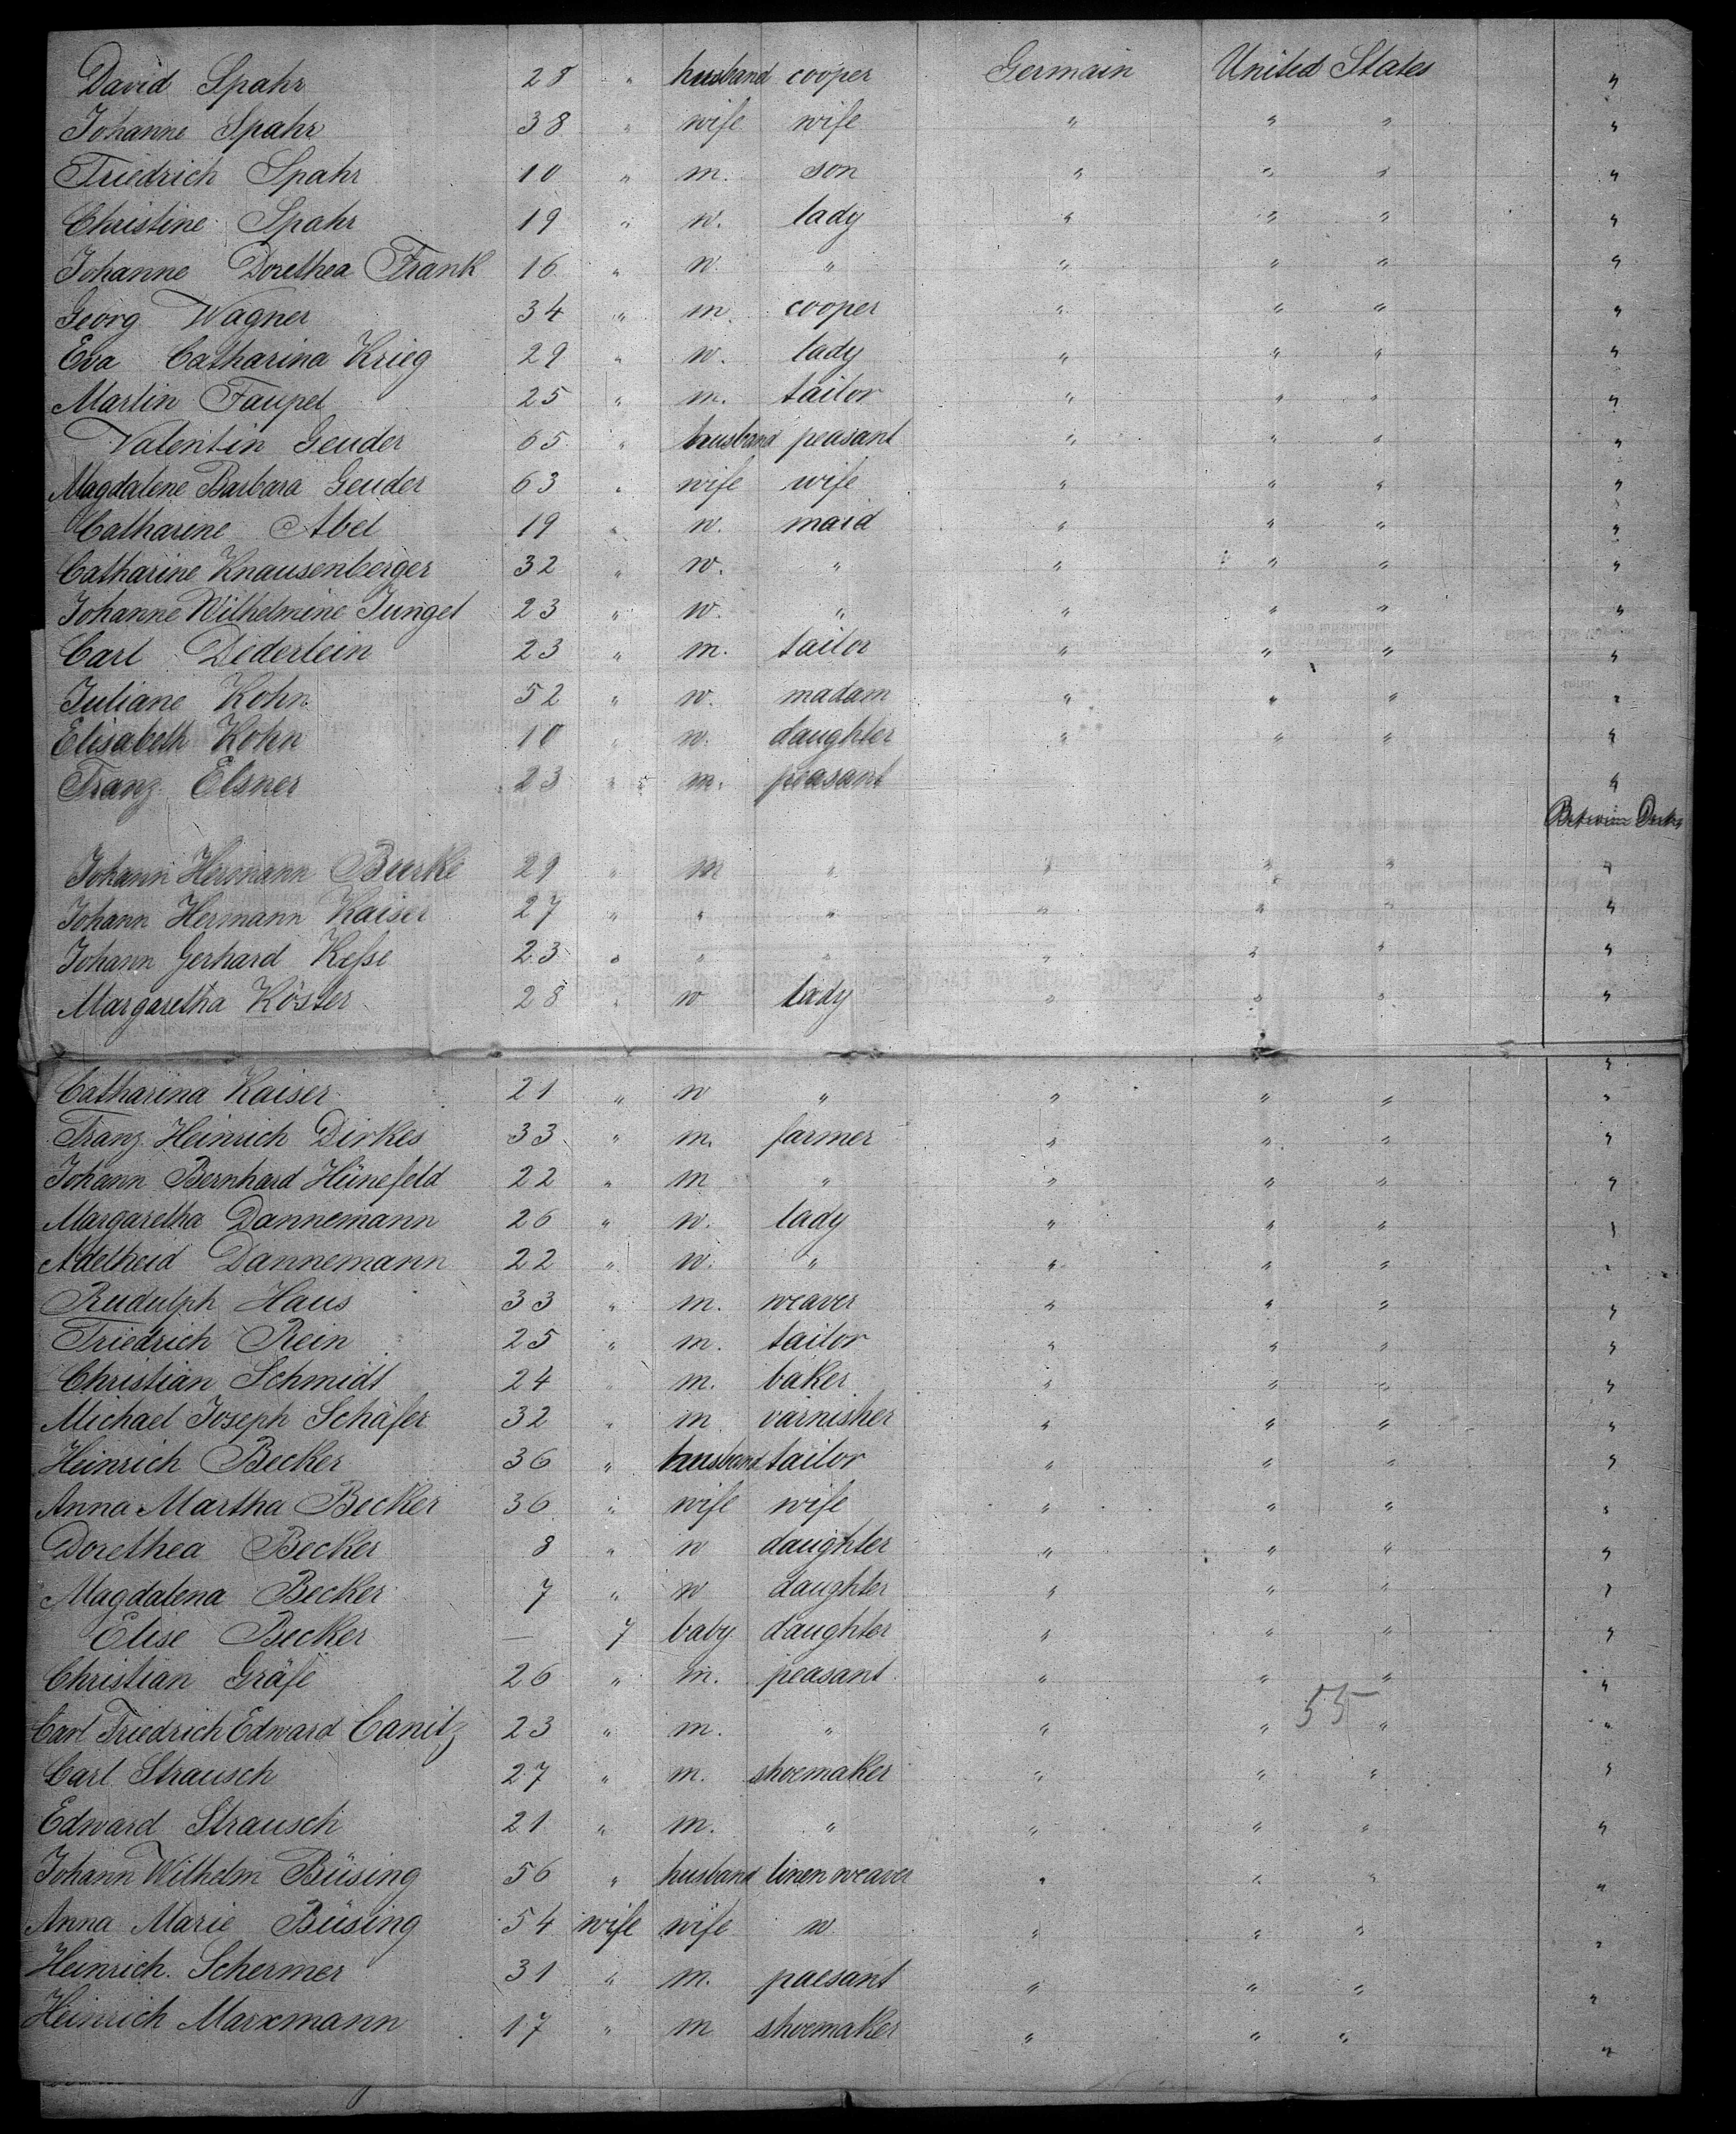 David Spahr 28 " husband cooper Germain United States "
Johanne Spahr 38 " wife wife " " " "
Friedrich Spahr 10 " m. son " " " "
Christine Spahr 19 " w. lady " " " "
Johanne Dorethea Frank 16 " w. " " " " "
Georg Wagner 34 " m. cooper " " " "
Eva Catharina Krieg 29 " w. lady " " " "
Martin Faupel 25 " m. tailor " " " "
Valentin Geuder 65 " husband peasant " " " "
Magdalene Barbara Geuder 63 " wife wife " " " "
Catharine Abel 19 " w. maid " " " "
Catharine Knausenberger 32 " w. " " " " "
Johanne Wilhelmine Jungel 23 " w. " " " " "
Carl Dederlein 23 " m. tailor " " " "
Juliane Kohn 52 " w. madam " " " "
Elisabeth Kohn 10 " w. daughter " " " "
Franz Elsner 23 " m. peasant "
Johann Hermann Burke 29 " m " " " " "
Johann Hermann Kaiser 27 " " " " " " "
Johann Gerhard Kesse 23 " " " " " " "
Margaretha Köster 28 " w lady " " " "
Catharina Kaiser 21 " w " " " " "
Franz Heinrich Dirkes 33 " m. farmer " " " "
Johann Bernhard Hünefeld 22 " m " " " " "
Margaretha Dannemann 26 " w. lady " " " "
Adelheid Dannemann 22 " w. " " " " "
Rudulph Haus 33 " m. weaver " " " "
Friedrich Rein 25 " m. tailor " " " "
Christian Schmidt 24 " m. baker " " " "
Michael Joseph Schäfer 32 " m varnisher " " " "
Heinrich Becker 36 " husband tailor " " " "
Anna Martha Becker 36 " wife wife " " " "
Dorethea Becker 8 " w daughter " " " "
Magdalena Becker 7 " w daughter " " " "
Elise Becker — 7 baby daughter " " " "
Christian Gräfe 26 " m. peasant " " " "
55
Carl Friedrich Edward Canitz 23 " m. " " " " "
Carl Strausch 27 " m. shoemaker " " " "
Edward Strausch 21 " m. " " " " "
Johann Wilhelm Büsing 56 " husband linen weaver " " " "
Anna Marie Büsing 54 wife wife w. " " " "
Heinrich Schermer 31 " m. paesant " " " "
Heinrich Marxmann 17 " m shoemaker " " " "